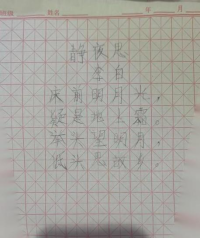 年 月
静夜思
李白
床前明月光，
疑是地上霜，
举头望明月，
低头思故乡，